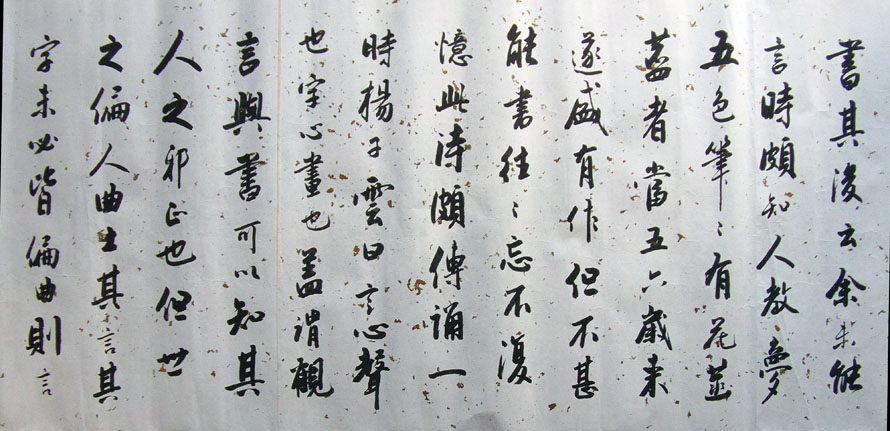 書其後云余未能
言時頗知人教夢
五色筆〻有花並
蒂者當五六歲来
遂盛有作但不甚
能書往〻忘不復
憶此詩頗傳誦一
時楊子雲曰言心聲
也字心畫也盖謂觀
言與書可以知其
人之邪正也但世
之偏人曲士其言其
字未必皆偏曲則言